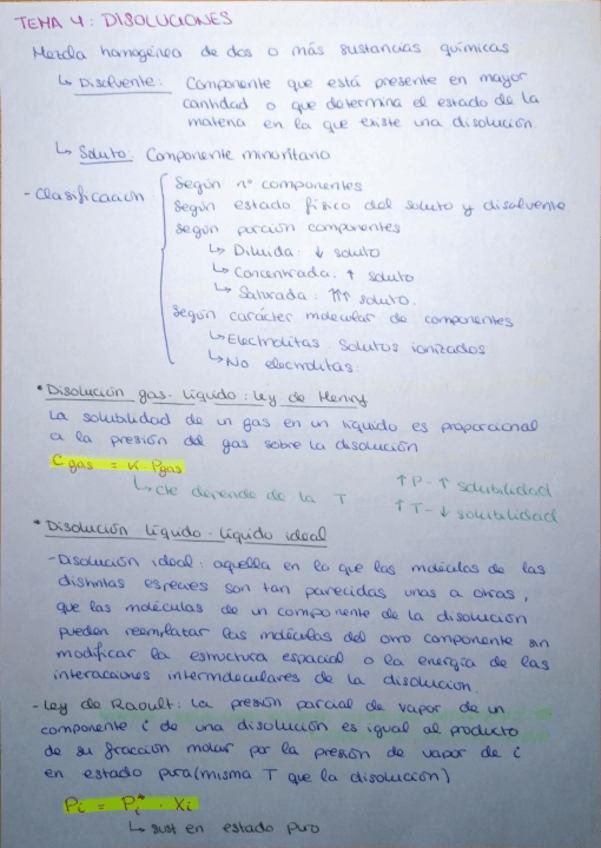 TEMA 4: DISOLUCIONES
Mezcla homogénea de dos o más sustancias químicas
↳ Disolvente: Componente que está presente en mayor
cantidad o que determina el estado de la
materia en la que existe una disolución.
↳ Soluto: Componente minoritario
- Clasificación
Según nº componentes
Según estado físico del soluto y disolvente
según porción componentes
↳ Diluida: ↓ soluto
↳ Concentrada: ↑ soluto
↳ Saturada: ↑↑↑ soluto.
Según carácter molecular de componentes
↳ Electrolitas. Solutos ionizados
↳ No electrolitas.
• Disolución gas-líquido: ley de Henry
La solubilidad de un gas en un líquido es proporcional
a la presión del gas sobre la disolución
C gas = K · Pgas
↳ cte depende de la T
↑ P - ↑ solubilidad
↑ T - ↓ solubilidad
• Disolución líquido-líquido ideal
- Disolución ideal: aquella en la que las moléculas de las
distintas especies son tan parecidas unas a otras,
que las moléculas de un componente de la disolución
pueden reemplazar las moléculas del otro componente sin
modificar la estructura espacial o la energía de las
interacciones intermoleculares de la disolución.
- Ley de Raoult: La presión parcial de vapor de un
componente i de una disolución es igual al producto
de su fracción molar por la presión de vapor de i
en estado pura (misma T que la disolución)
Pi = Pi* · Xi
↳ sust en estado puro